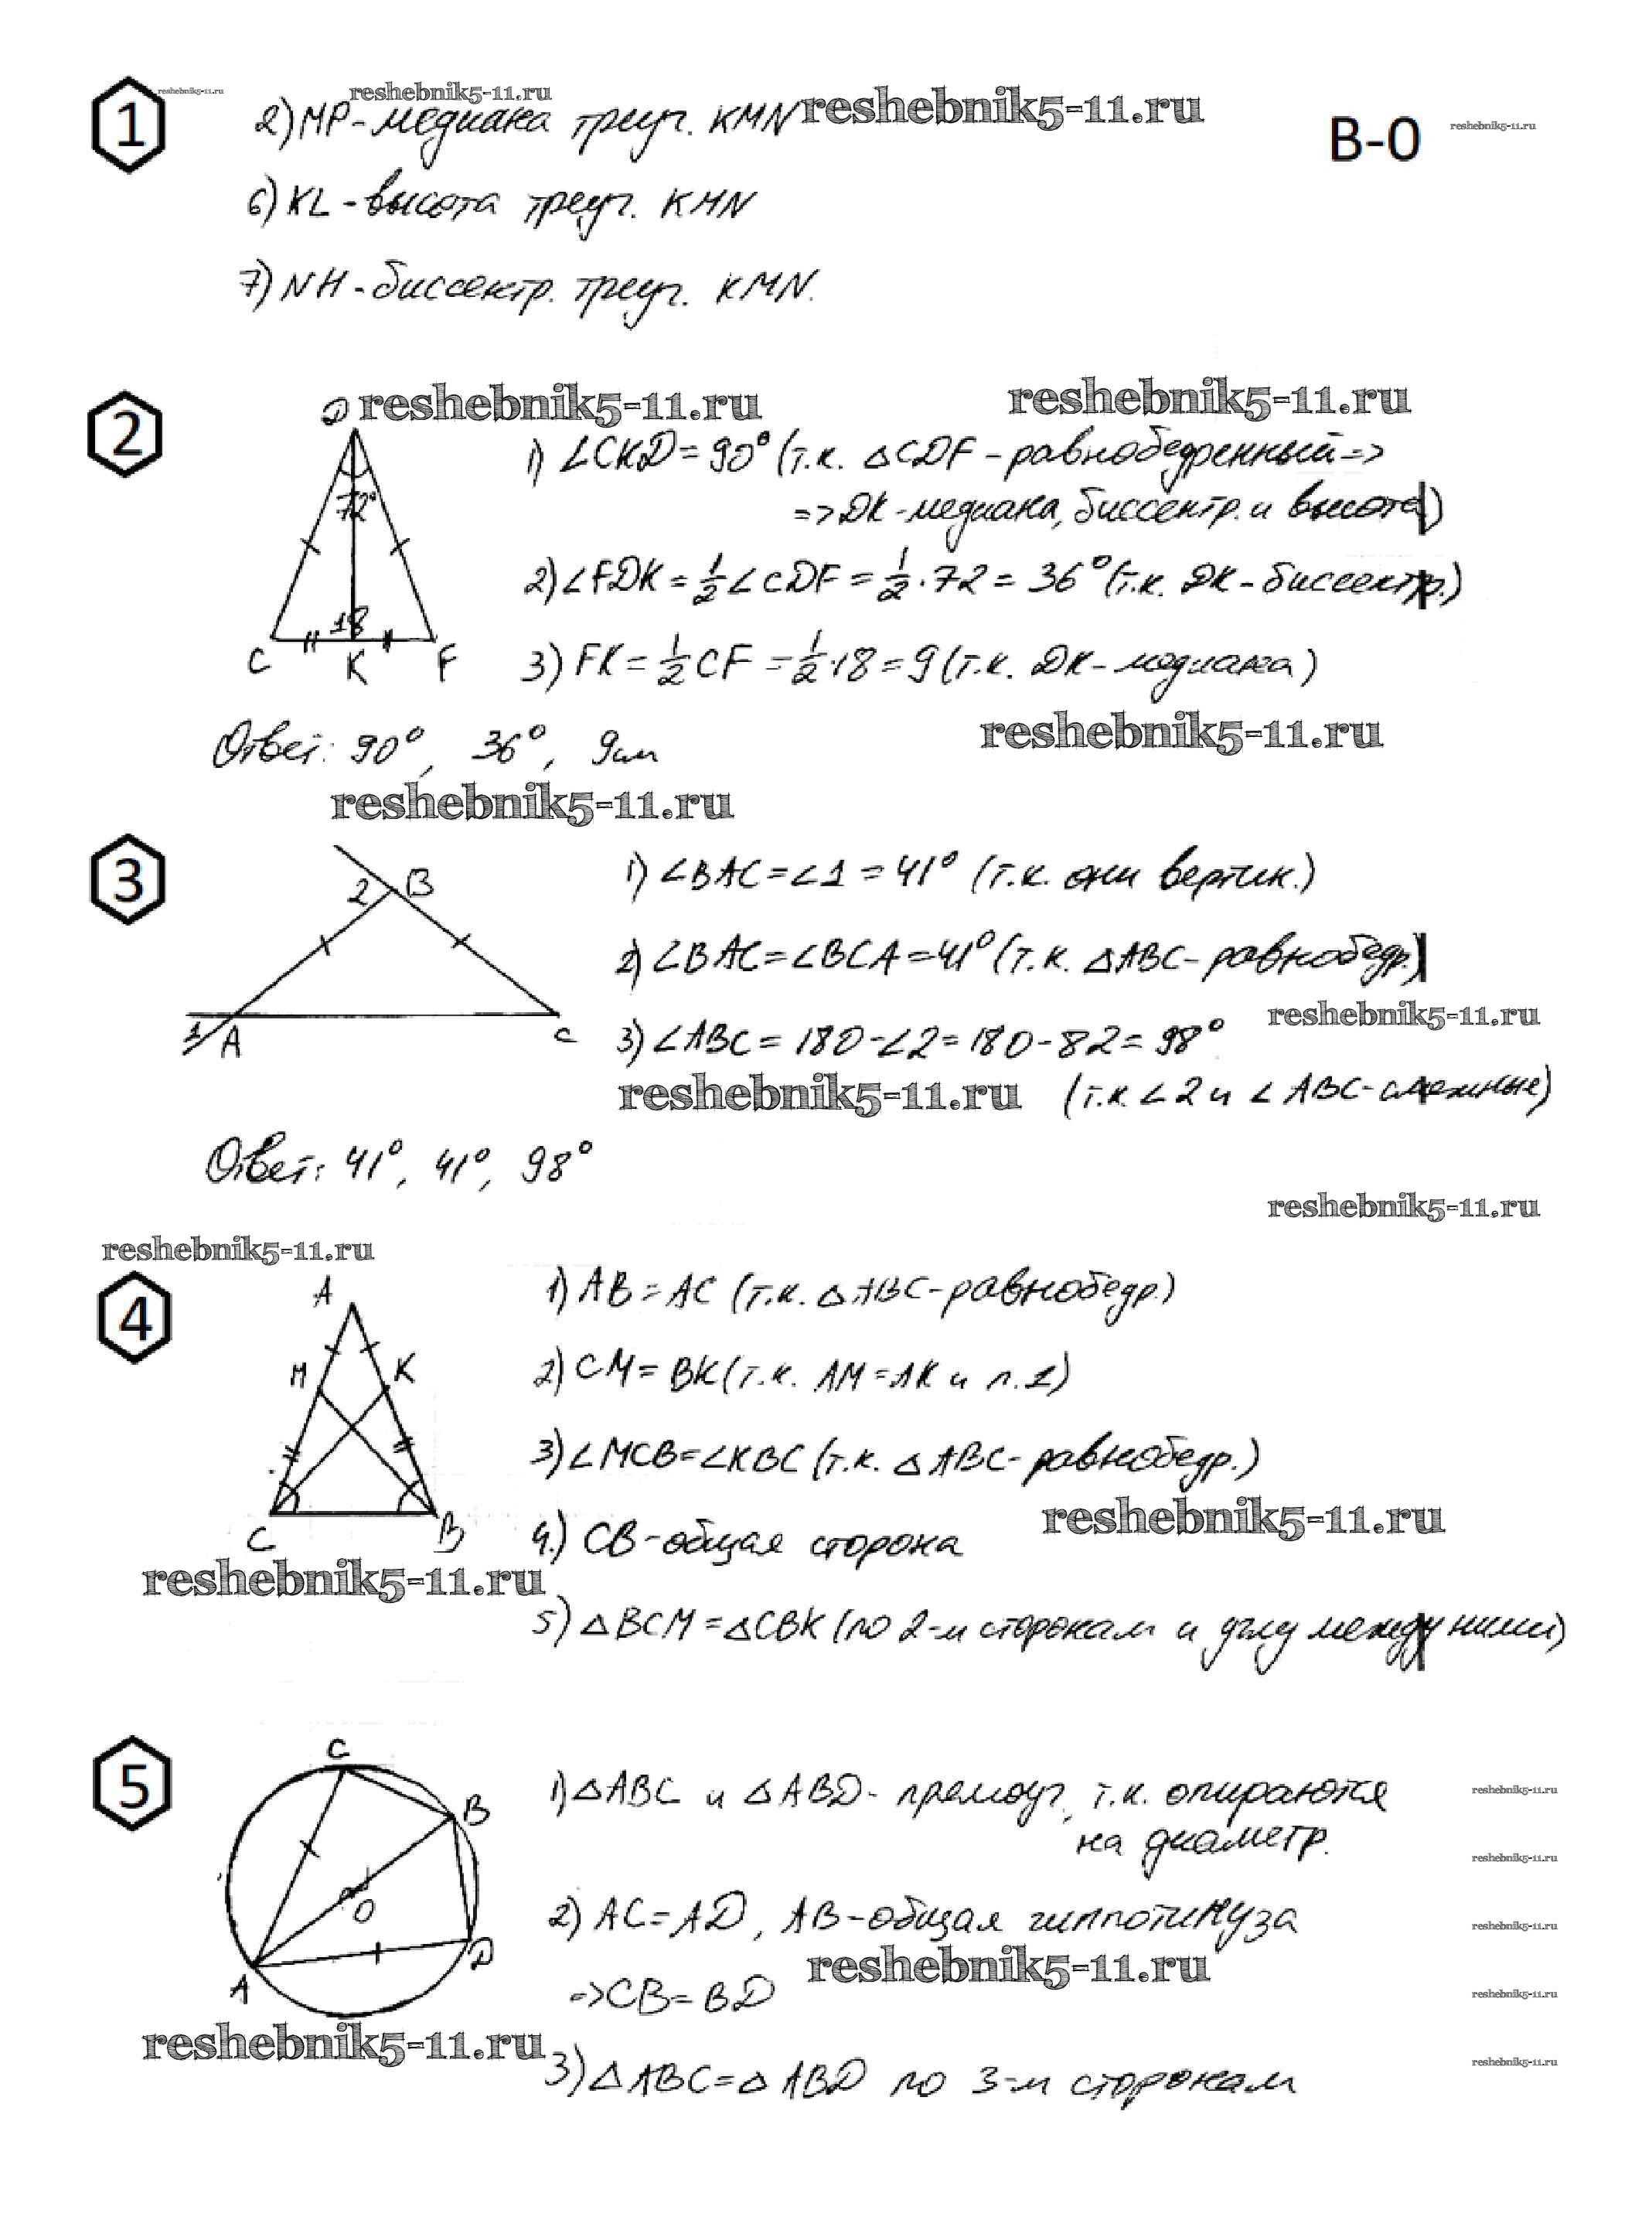 reshebnik5-11.ru
reshebnik5-11.ru
reshebnik5-11.ru
reshebnik5-11.ru
В-0
1
2) MP - медиана треуг. KMN
6) KL - высота треуг. KMN
7) NH - биссектр. треуг. KMN.
2
reshebnik5-11.ru
reshebnik5-11.ru
D
72°
18
C K F
1) ∠CKD = 90° (т.к. △CDF - равнобедренный =>
=> DK - медиана, биссектр. и высота)
2) ∠FDK = 1/2 ∠CDF = 1/2 · 72 = 36° (т.к. DK - биссектр.)
3) FK = 1/2 CF = 1/2 · 18 = 9 (т.к. DK - медиана)
reshebnik5-11.ru
Ответ: 90°, 36°, 9см
reshebnik5-11.ru
3
2 B
1 A C
1) ∠BAC = ∠1 = 41° (т.к. они вертик.)
2) ∠BAC = ∠BCA = 41° (т.к. △ABC - равнобедр.)
reshebnik5-11.ru
3) ∠ABC = 180 - ∠2 = 180 - 82 = 98°
reshebnik5-11.ru
(т.к. ∠2 и ∠ABC - смежные)
Ответ: 41°, 41°, 98°
reshebnik5-11.ru
reshebnik5-11.ru
4
A
M K
C B
1) AB = AC (т.к. △ABC - равнобедр.)
2) CM = BK (т.к. AM = AK и п. 1)
3) ∠MCB = ∠KBC (т.к. △ABC - равнобедр.)
reshebnik5-11.ru
4.) CB - общая сторона
reshebnik5-11.ru
5) △BCM = △CBK (по 2-м сторонам и углу между ними)
5
C
B
O
A D
1) △ABC и △ABD - прямоуг., т.к. опираются
на диаметр.
2) AC = AD, AB - общая гиппотинуза
reshebnik5-11.ru
=> CB = BD
reshebnik5-11.ru
3) △ABC = △ABD по 3-м сторонам
reshebnik5-11.ru
reshebnik5-11.ru
reshebnik5-11.ru
reshebnik5-11.ru
reshebnik5-11.ru